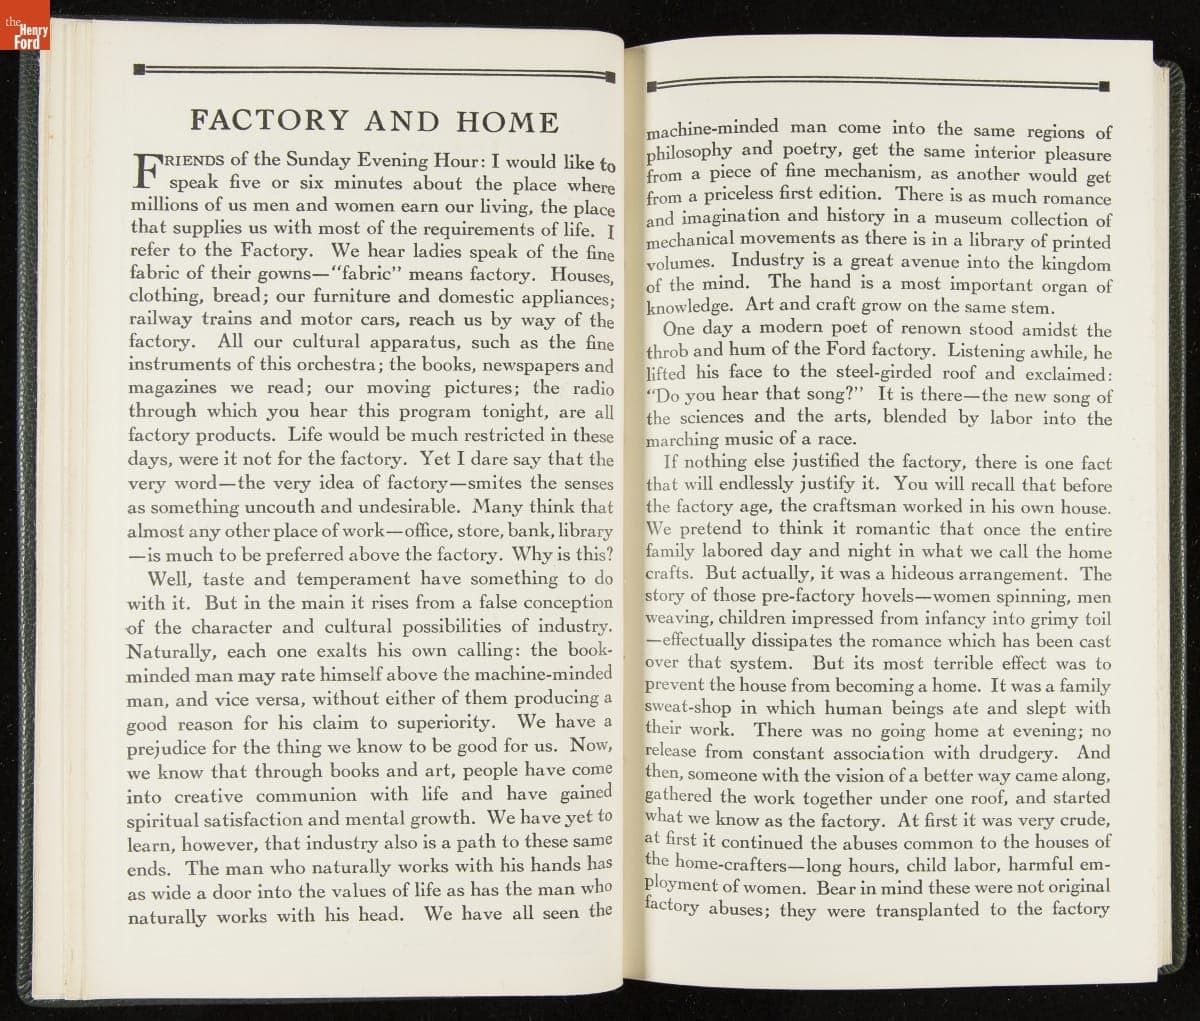 the
Henry
Ford
FACTORY AND HOME
FRIENDS of the Sunday Evening Hour: I would like to
speak five or six minutes about the place where
millions of us men and women earn our living, the place
that supplies us with most of the requirements of life. I
refer to the Factory. We hear ladies speak of the fine
fabric of their gowns—“fabric” means factory. Houses,
clothing, bread; our furniture and domestic appliances;
railway trains and motor cars, reach us by way of the
factory. All our cultural apparatus, such as the fine
instruments of this orchestra; the books, newspapers and
magazines we read; our moving pictures; the radio
through which you hear this program tonight, are all
factory products. Life would be much restricted in these
days, were it not for the factory. Yet I dare say that the
very word—the very idea of factory—smites the senses
as something uncouth and undesirable. Many think that
almost any other place of work—office, store, bank, library
—is much to be preferred above the factory. Why is this?
Well, taste and temperament have something to do
with it. But in the main it rises from a false conception
of the character and cultural possibilities of industry.
Naturally, each one exalts his own calling: the book-
minded man may rate himself above the machine-minded
man, and vice versa, without either of them producing a
good reason for his claim to superiority. We have a
prejudice for the thing we know to be good for us. Now,
we know that through books and art, people have come
into creative communion with life and have gained
spiritual satisfaction and mental growth. We have yet to
learn, however, that industry also is a path to these same
ends. The man who naturally works with his hands has
as wide a door into the values of life as has the man who
naturally works with his head. We have all seen the
machine-minded man come into the same regions of
philosophy and poetry, get the same interior pleasure
from a piece of fine mechanism, as another would get
from a priceless first edition. There is as much romance
and imagination and history in a museum collection of
mechanical movements as there is in a library of printed
volumes. Industry is a great avenue into the kingdom
of the mind. The hand is a most important organ of
knowledge. Art and craft grow on the same stem.
One day a modern poet of renown stood amidst the
throb and hum of the Ford factory. Listening awhile, he
lifted his face to the steel-girded roof and exclaimed:
“Do you hear that song?” It is there—the new song of
the sciences and the arts, blended by labor into the
marching music of a race.
If nothing else justified the factory, there is one fact
that will endlessly justify it. You will recall that before
the factory age, the craftsman worked in his own house.
We pretend to think it romantic that once the entire
family labored day and night in what we call the home
crafts. But actually, it was a hideous arrangement. The
story of those pre-factory hovels—women spinning, men
weaving, children impressed from infancy into grimy toil
—effectually dissipates the romance which has been cast
over that system. But its most terrible effect was to
prevent the house from becoming a home. It was a family
sweat-shop in which human beings ate and slept with
their work. There was no going home at evening; no
release from constant association with drudgery. And
then, someone with the vision of a better way came along,
gathered the work together under one roof, and started
what we know as the factory. At first it was very crude,
at first it continued the abuses common to the houses of
the home-crafters—long hours, child labor, harmful em-
ployment of women. Bear in mind these were not original
factory abuses; they were transplanted to the factory